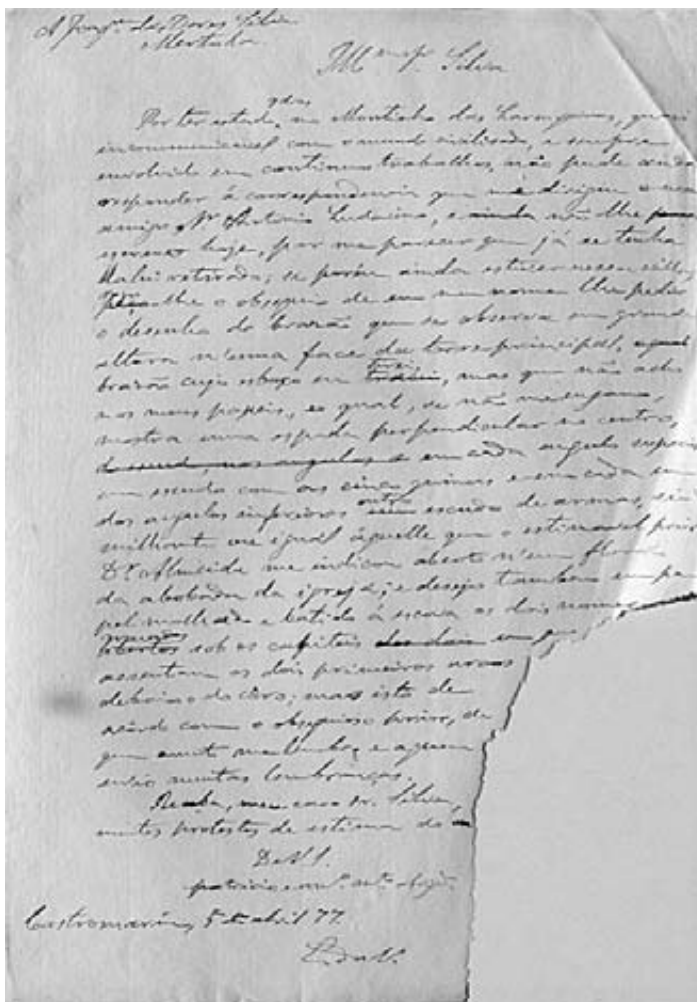 A Joaqm. das Dores Silva
Mertola.
Silva
gdas
Por ter estado, no Montinho das Laranjeiras, quasi
incommunicavel com o mundo civilisado, e sempre
envolvido em continuos trabalhos, não pude ainda
responder á correspondencia que me dirigiu o meu
amigo Sr. Antonio, e ainda não lhe
escrevo hoje, por me parecer que já se tenha
d'ahi retirado; se porém ainda estiver nessa villa,
Peço-lhe o obsequio de em meu nome lhe pedir
o desenho do brazão que se observa em grande
altura n'uma face da torre principal,
brazão cujo esboço eu tirei, mas que não acho
nos meus papeis, o qual, se não me engano,
mostra uma espada perpendicular no centro,
e em cada angulo superior
um escudo com as cinco quinas e em cada um
dos angulos inferiores outro escudo de armas,
milhante ou igual áquelle que o estimavel prior
Dr. Almeida me indicou aberto n'um
da abobada da igreja; e desejo tambem em pa-
pel molhado e batido á escova os dois nomes
sob os capiteis em que
assentam os dois primeiros arcos
debaixo do côro; mas isto de
acôrdo com o obsequioso prior, de
quem me lembro e a quem
envio muitas lembranças.
Receba, meu caro Sr. Silva,
muitos protestos de estima do
De V. S.
patricio e mto. obrigdo.
Castromarim, 5 de abril 77
E. da V.